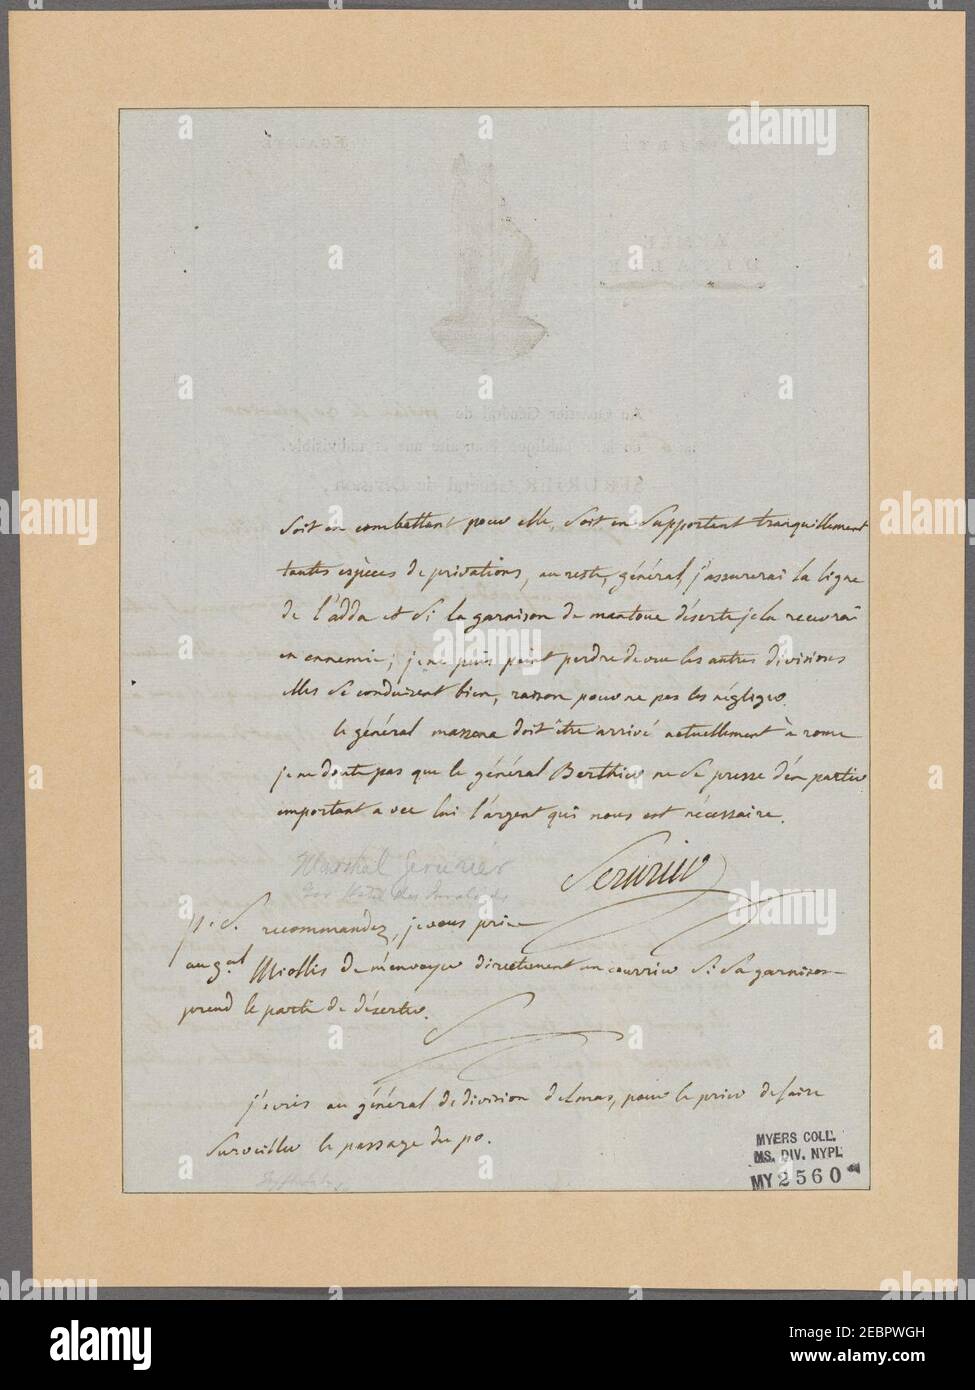 soit en combattant pour elle, soit en supportant tranquillement
toutes espèces de privations, au reste, général, j'assurerai la ligne
de l'adda et si la garnison de mantoue déserte je la recevrai
en ennemie; je ne puis point perdre de vue les autres divisions
elles se conduisent bien, raison pour ne pas les négliger.
le général massena doit être arrivé actuellement à rome
je ne doute pas que le général Berthier ne se presse d'en partir
emportant avec lui l'argent qui nous est nécessaire.
Serurier
Marshal Serurier
p. S. recommandez, je vous prie
au gal Miollis de m'envoyer directement un courrier si sa garnison
prend le parti de déserter.
S
j'écris au général de division delmas, pour le prier de faire
surveiller le passage du po.
MYERS COLL.
MS. DIV. NYPL
MY 2560
alamy
Image ID: 2EBPWGH
www.alamy.com